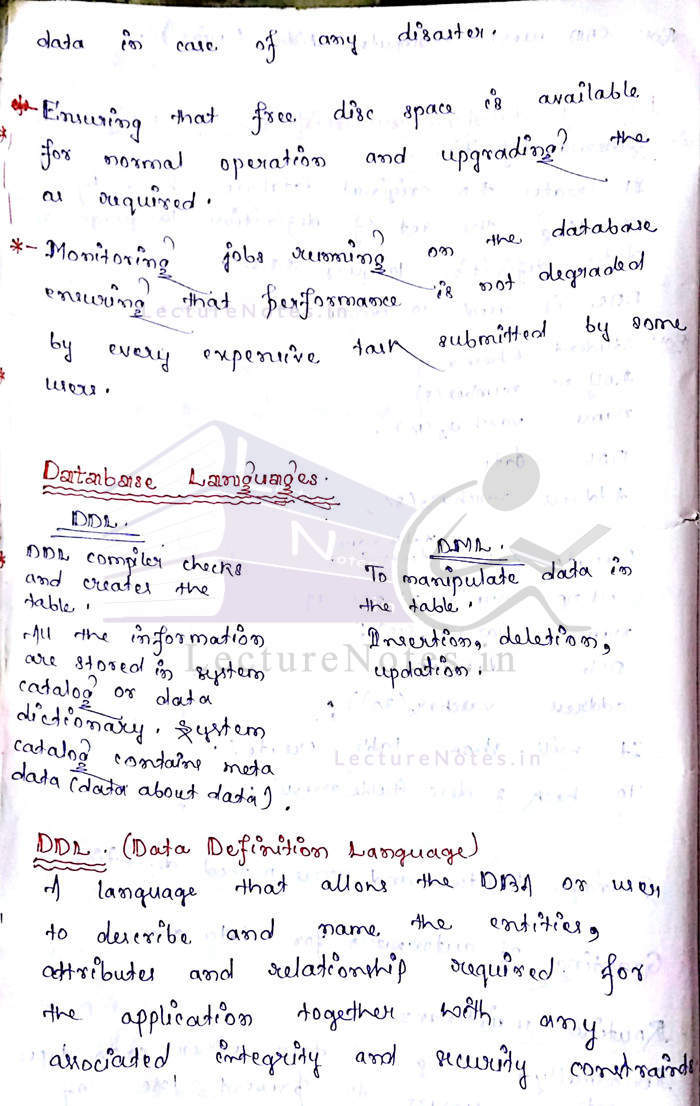 data in case of any disaster.
*- Ensuring that free disc space is available
for normal operation and upgrading the
as required.
*- Monitoring jobs running on the database
ensuring that performance is not degraded
LectureNotes.in
by every expensive task submitted by some
users.
Database Languages.
DDL.
DDL compiler checks
and creates the
table.
All the information
are stored in system
catalog or data
dictionary. System
catalog contains meta
data (data about data).
DML.
To manipulate data in
the table.
Insertion, deletion,
updation.
Note
LectureNotes.in
LectureNotes.in
DDL. (Data Definition Language)
A language that allows the DBA or user
to describe and name the entities,
attributes and relationship required for
the application together with any
associated integrity and security constraints